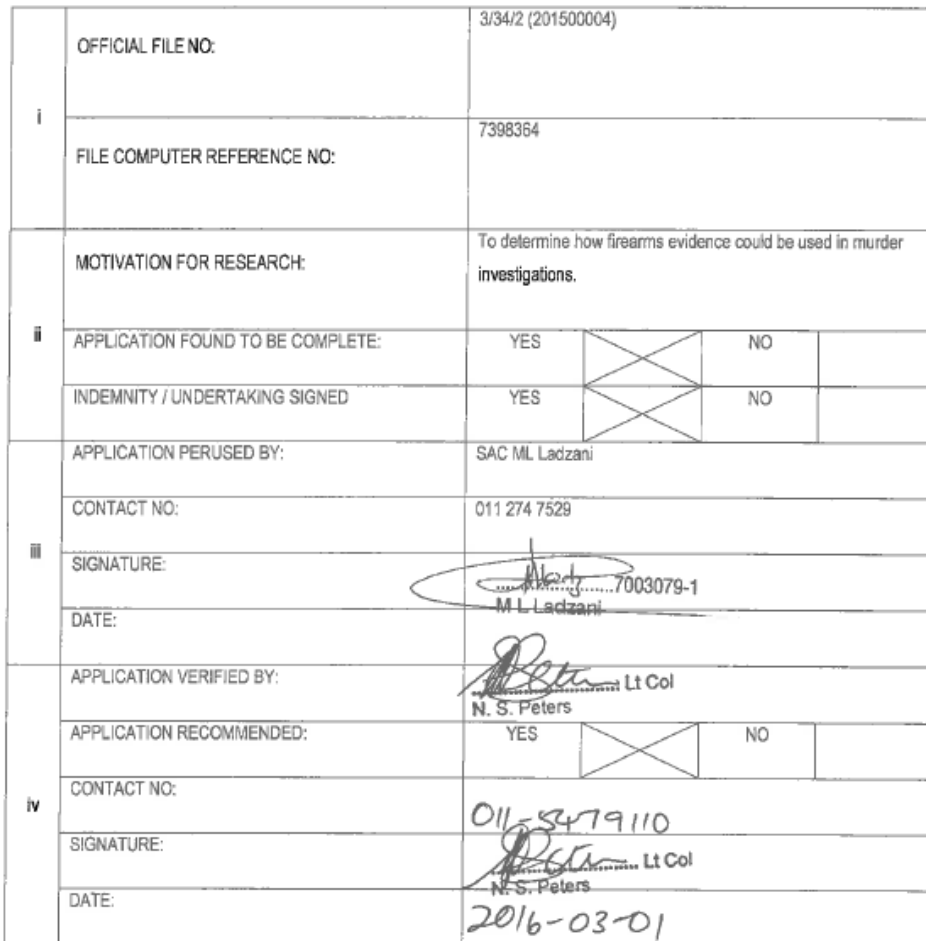 OFFICIAL FILE NO:
3/34/2 (201500004)
i
FILE COMPUTER REFERENCE NO:
7398364
ii
MOTIVATION FOR RESEARCH:
To determine how firearms evidence could be used in murder
investigations.
APPLICATION FOUND TO BE COMPLETE:
YES NO
INDEMNITY / UNDERTAKING SIGNED
YES NO
iii
APPLICATION PERUSED BY:
SAC ML Ladzani
CONTACT NO:
011 274 7529
SIGNATURE:
7003079-1
M L Ladzani
DATE:
iv
APPLICATION VERIFIED BY:
Lt Col
N. S. Peters
APPLICATION RECOMMENDED:
YES NO
CONTACT NO:
011-5479110
SIGNATURE:
Lt Col
N. S. Peters
DATE:
2016-03-01